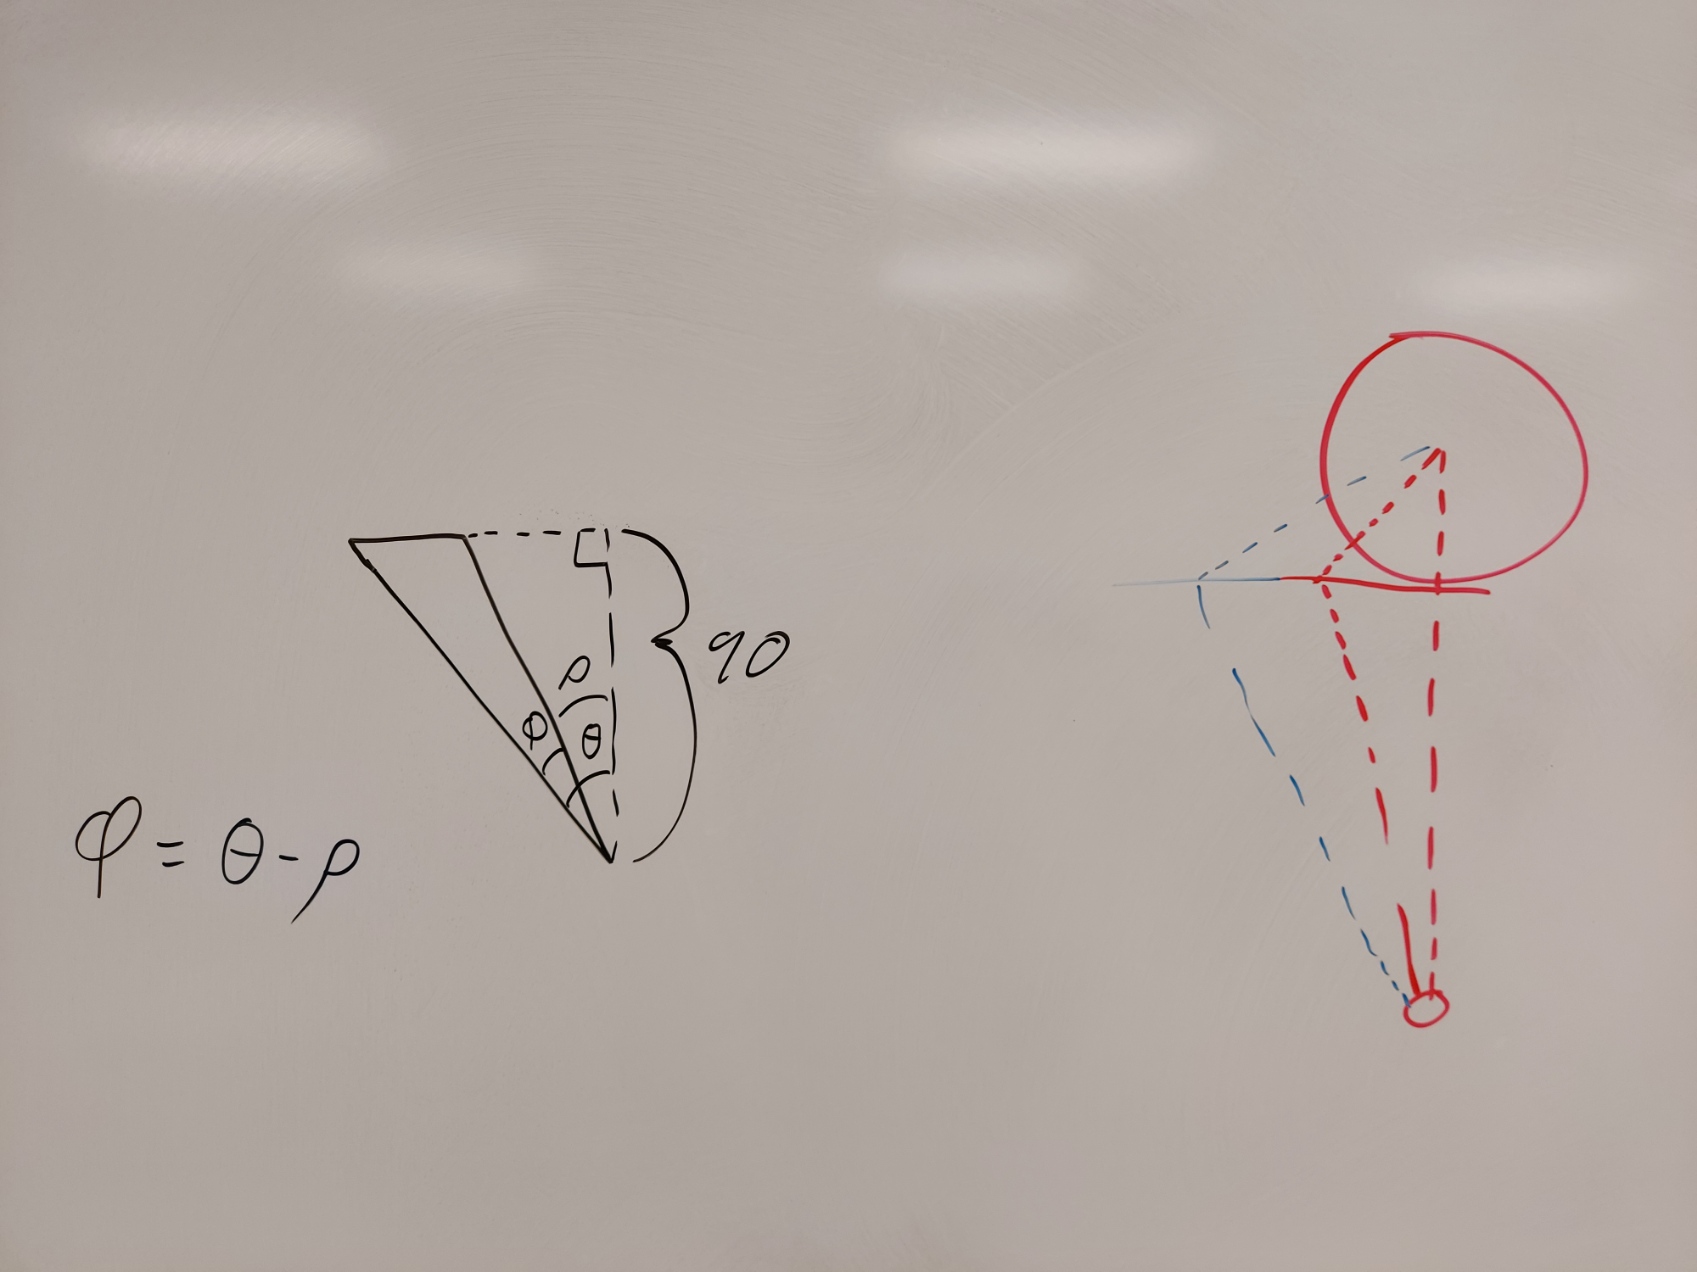 90
ρ
φ
θ
φ = θ - ρ